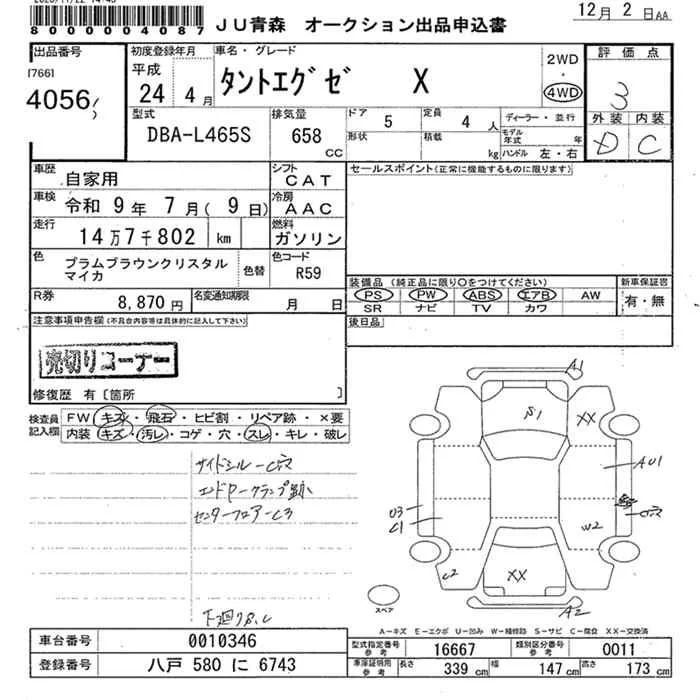 8000004087
JU青森 オークション出品申込書
12月 2日AA
出品番号
[7661
4056
初度登録年月
平成
24 4月
車名・グレード
タントエグゼ X
2WD
・
4WD
評価点
3
外装 内装
D C
型式
DBA-L465S
排気量
658
CC
ドア 5
定員 4 人
ディーラー・並行
形状
積載 kg
モデル年式 年
ハンドル 左・右
車歴
自家用
シフト
CAT
セールスポイント(正常に機能するものに限ります)
車検
令和 9年 7月( 9日)
冷房
AAC
走行
14万7千802 km
燃料
ガソリン
色
プラムブラウンクリスタル
マイカ
色替
色コード
R59
R券
8,870円
名変通知期限
月 日
装備品(純正品に限り○をつけてください)
新車保証書
PS PW ABS エアB AW
SR ナビ TV カワ
有・無
後日品
注意事項申告欄(不具合内容等は具体的に記入して下さい)
売切りコーナー
修復歴 有〔箇所 〕
検査員
記入欄
FW キズ・飛石・ヒビ割・リペア跡・×要
内装 キズ・汚レ・コゲ・穴・スレ・キレ・破レ
サイドシル
センターフロアーC3
A1
S1
XX
AU1
U3
C1
W2
C2
XX
A2
スペア
A-キズ E-エクボ U-凹み W-補修跡 S-サビ C-腐食 XX-交換済
車台番号
0010346
登録番号
八戸 580 に 6743
型式指定番号
参考
16667
類別区分番号
参考
0011
車庫証明用
参考
長さ 339 cm
幅 147 cm
高さ 173 cm